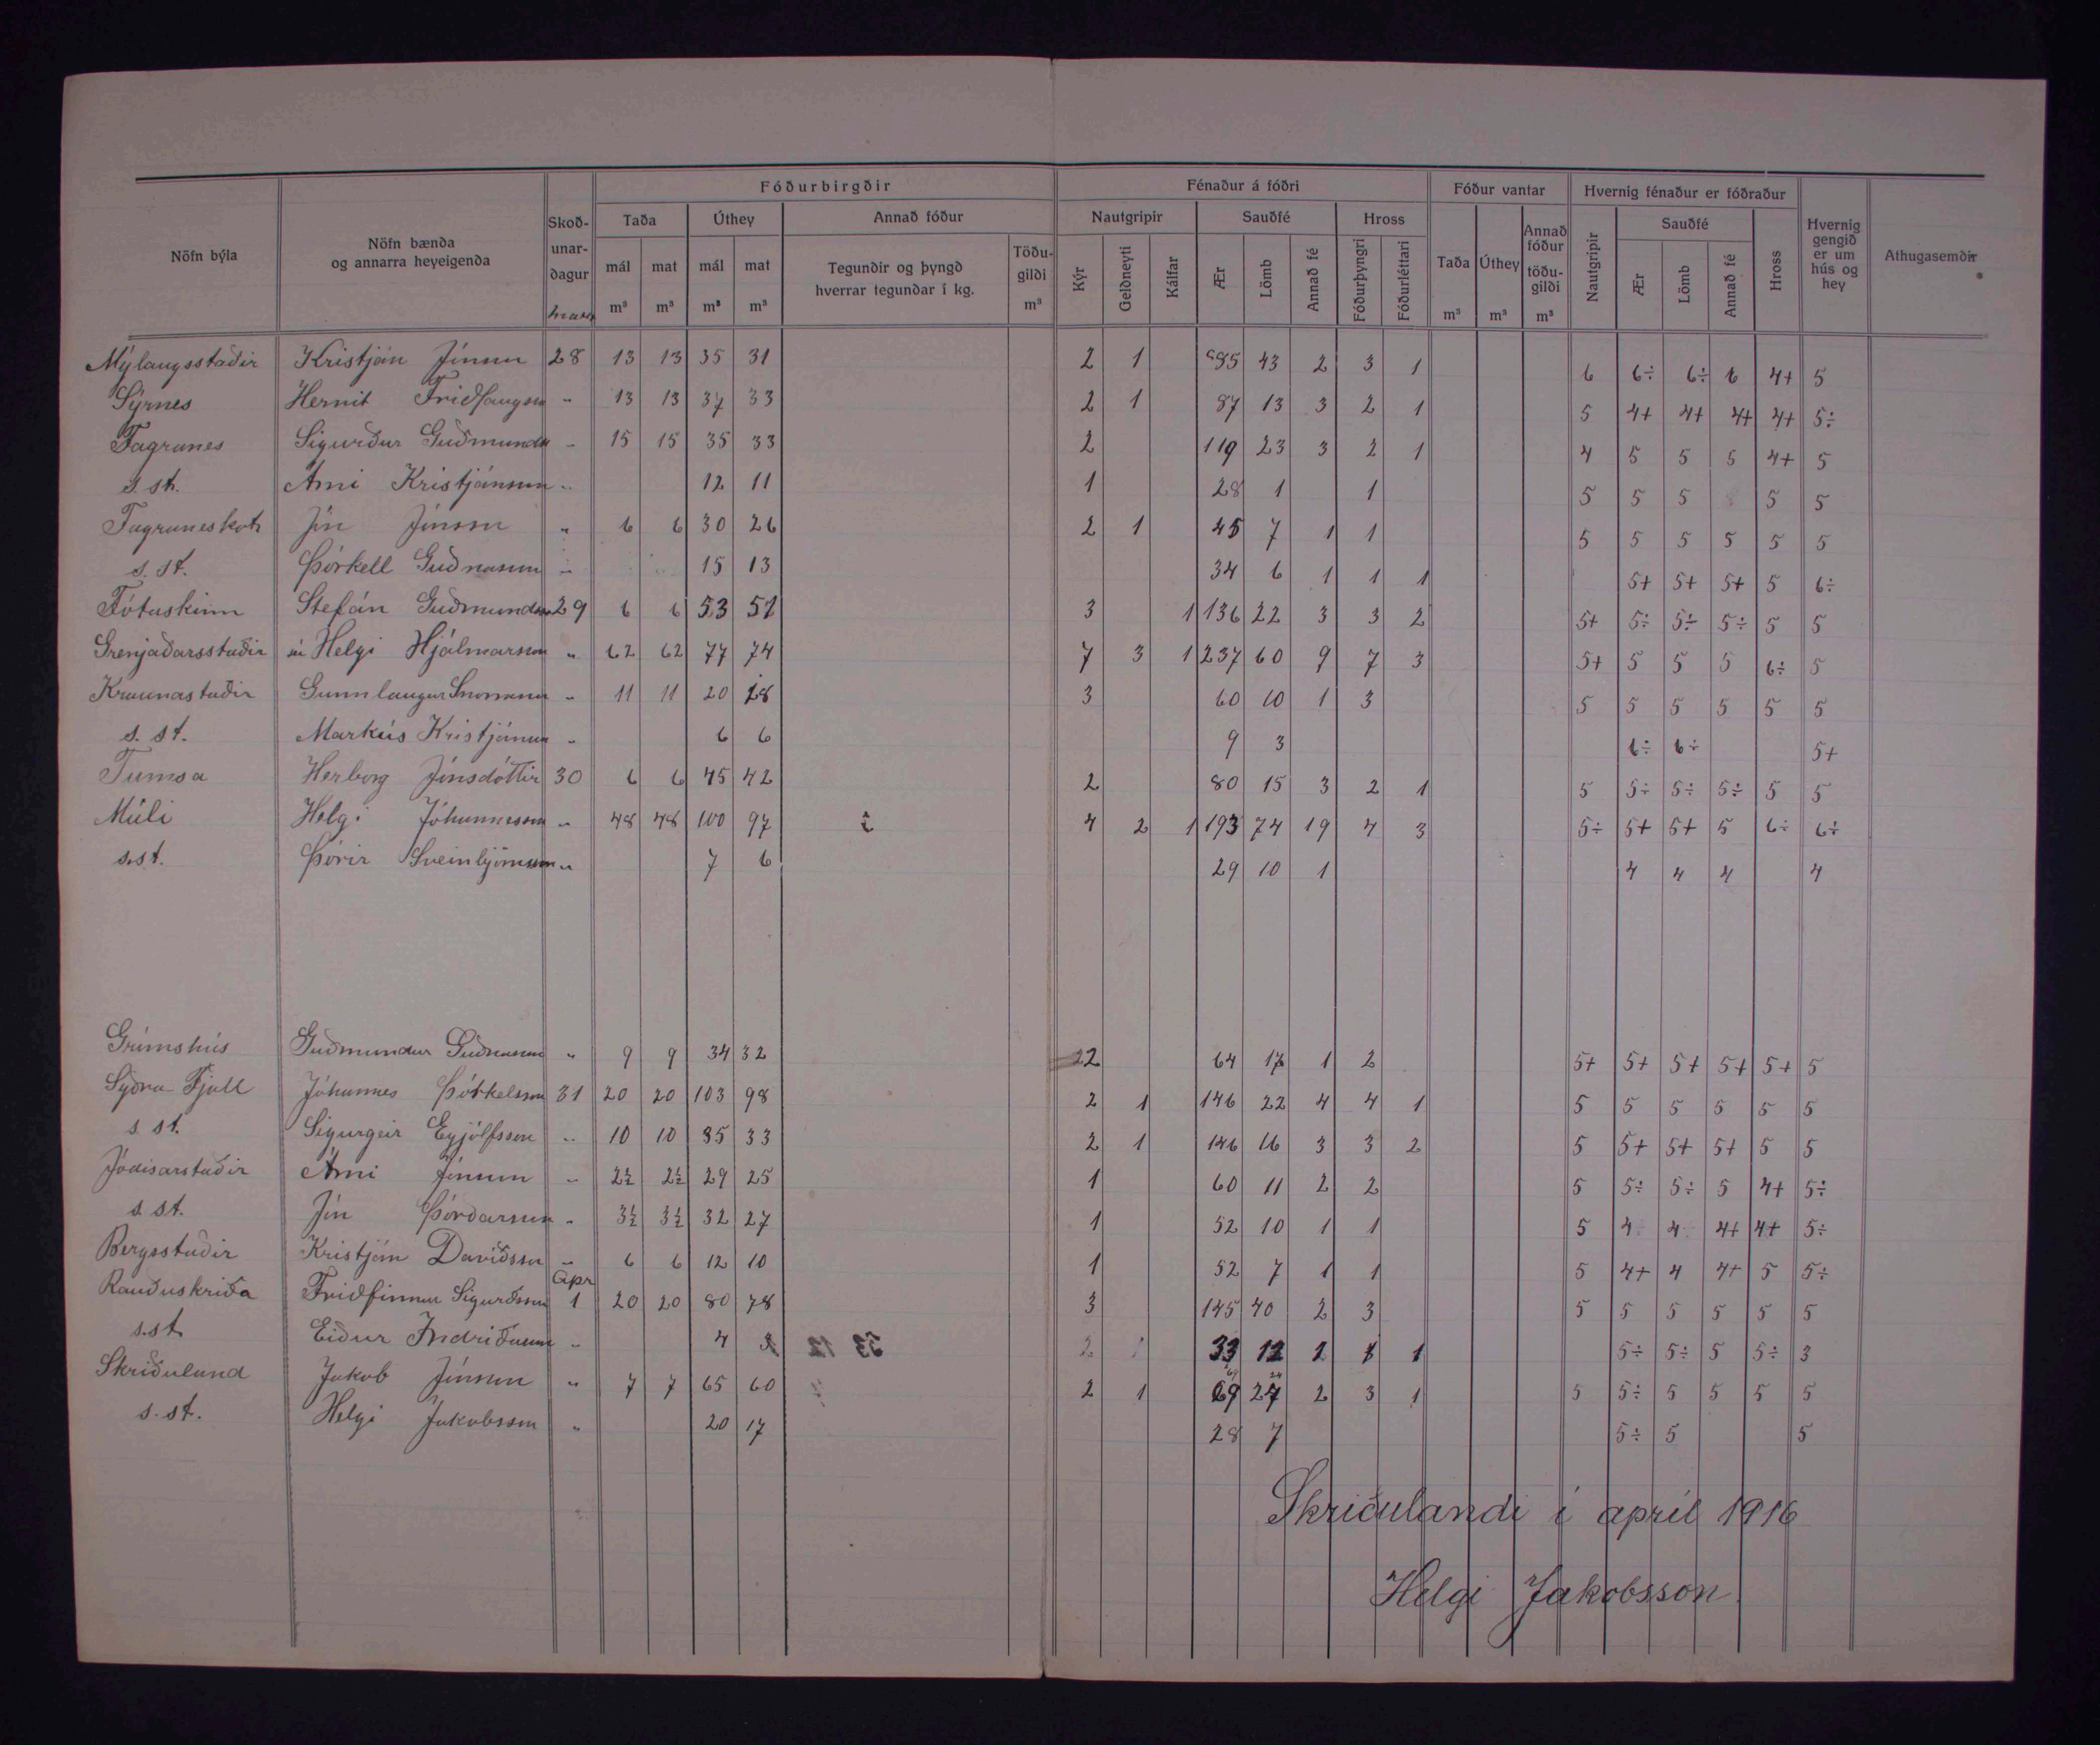 Fóðurbirgðir Fénaður á fóðri Fóður vantar Hvernig fénaður er fóðraður
Nöfn býla Nöfn bænda og annarra heyeigenda Skoðunardagur Taða Úthey Annað fóður Nautgripir Sauðfé Hross Taða Úthey Annað fóður töðugildi Nautgripir Sauðfé Hross Hvernig gengið er um hús og hey Athugasemdir
mál mat mál mat Tegundir og þyngd hverrar tegundar í kg. Töðugildi Kýr Geldneyti Kálfar Ær Lömb Annað fé Fóðurþyngri Fóðurléttari Ær Lömb Annað fé
mars m³ m³ m³ m³ m³ m³ m³ m³
Mýlaugsstaðir Kristján Jónsson 28 13 13 35 31 2 1 85 43 2 3 1 6 6÷ 6÷ 6 4+ 5
Sýrnes Hernit Friðlaugsson " 13 13 37 33 2 1 87 13 3 2 1 5 4+ 4+ 4+ 4+ 5÷
Fagranes Sigurður Guðmundss " 15 15 35 33 2 119 23 3 2 1 4 5 5 5 4+ 5
s. st. Árni Kristjánsson " 12 11 1 28 1 1 5 5 5 5 5
Fagraneskot Jón Jónsson " 6 6 30 26 2 1 45 7 1 1 5 5 5 5 5 5
s. st. Þórkell Guðnason " 15 13 34 6 1 1 1 5+ 5+ 5+ 5 6÷
Fótaskinn Stefán Guðmundsson 29 6 6 53 51 3 1 136 22 3 3 2 5+ 5÷ 5÷ 5÷ 5 5
Grenjaðarsstaðir Helgi Hjálmarsson " 62 62 77 74 7 3 1 237 60 9 7 3 5+ 5 5 5 6÷ 5
Kraunastaðir Gunnlaugur Snorrason " 11 11 20 18 3 60 10 1 3 5 5 5 5 5 5
s. st. Markús Kristjánsson " 6 6 9 3 6÷ 6÷ 5+
Tumsa Herborg Jónsdóttir 30 6 6 45 42 2 80 15 3 2 1 5 5÷ 5÷ 5÷ 5 5
Múli Helgi Jóhannesson " 48 48 100 97 4 2 1 193 74 19 4 3 5÷ 5+ 5+ 5 6÷ 6÷
s.st. Þórir Sveinbjörnsson " 7 6 29 10 1 4 4 4 4
Grímshús Guðmundur Guðnason " 9 9 34 32 2 64 17 1 2 5+ 5+ 5+ 5+ 5+ 5
Syðra-Fjall Jóhannes Þórkelsson 31 20 20 103 98 2 1 146 22 4 4 1 5 5 5 5 5 5
s st. Sigurgeir Eyjólfsson " 10 10 35 33 2 1 146 16 3 3 2 5 5+ 5+ 5+ 5 5
Jódísarstaðir Árni Jónsson " 2½ 2½ 29 25 1 60 11 2 2 5 5÷ 5÷ 5 4+ 5÷
s st. Jón Þórðarson " 3½ 3½ 32 27 1 52 10 1 1 5 4 4 4+ 4+ 5÷
Bergsstaðir Kristján Davíðsson " 6 6 12 10 1 52 7 1 1 5 4+ 4 4+ 5 5÷
Rauðuskriða Friðfinnur Sigurðsson Apr 1 20 20 80 78 3 145 40 2 3 5 5 5 5 5 5
s.st. Eiður Indriðason " 4 33 12 1 1 1 5÷ 5÷ 5 5÷ 3
Skriðuland Jakob Jónsson " 7 7 65 60 2 1 69 24 2 3 1 5 5÷ 5 5 5 5
s. st. Helgi Jakobsson " 20 17 28 7 5÷ 5 5
Skriðulandi í apríl 1916
Helgi Jakobsson